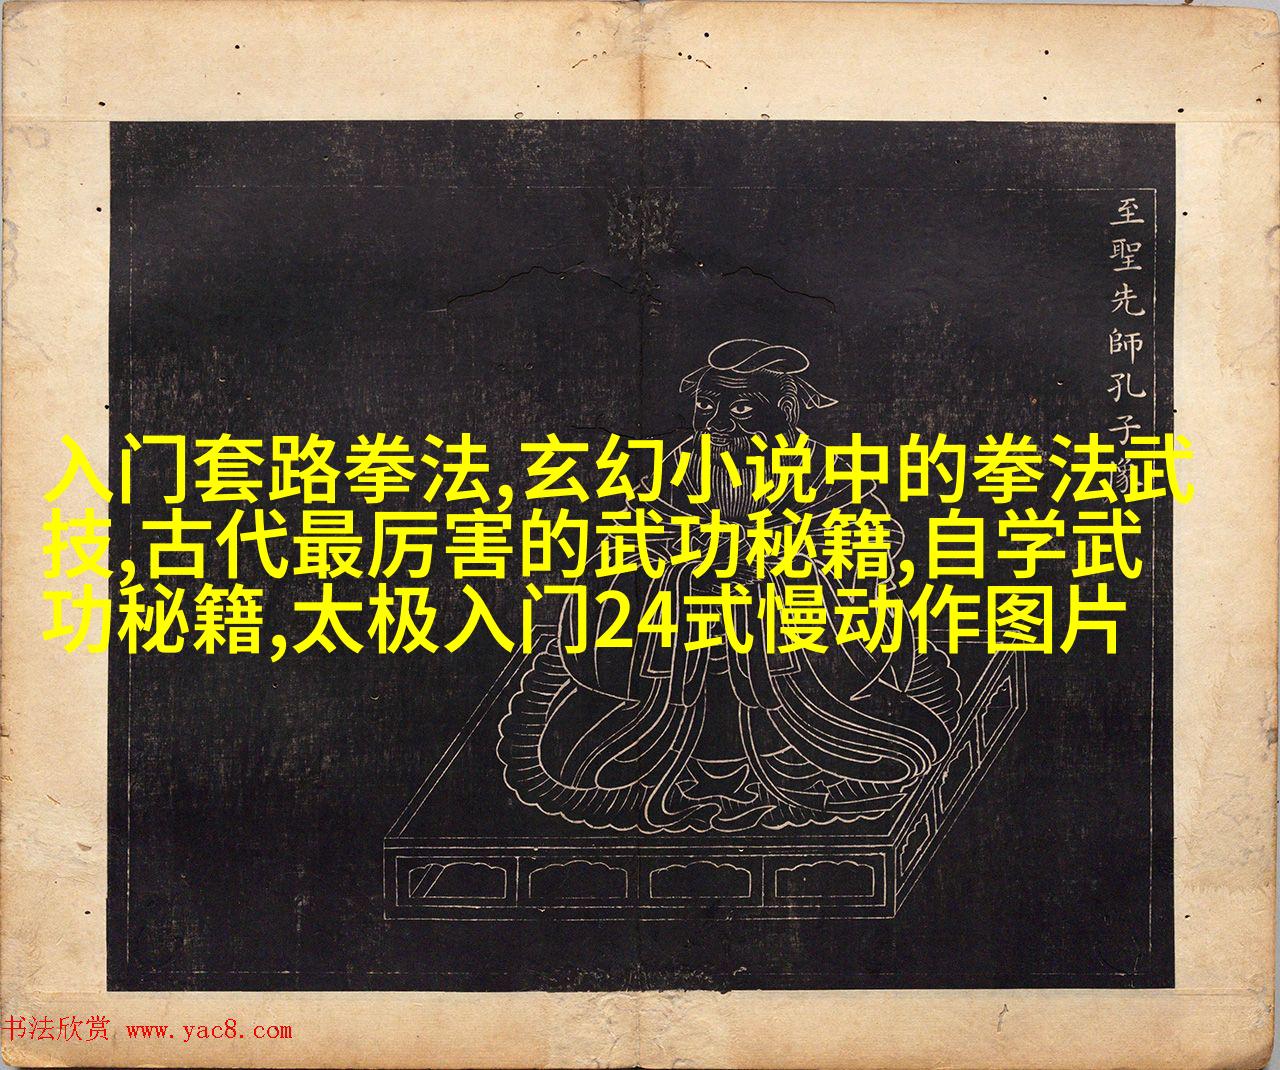 至聖先師孔子像
入门套路拳法,玄幻小说中的拳法武
技,古代最厉害的武功秘籍,自学武
功秘籍,太极入门24式慢动作图片
书法欣赏 www.yac8.com